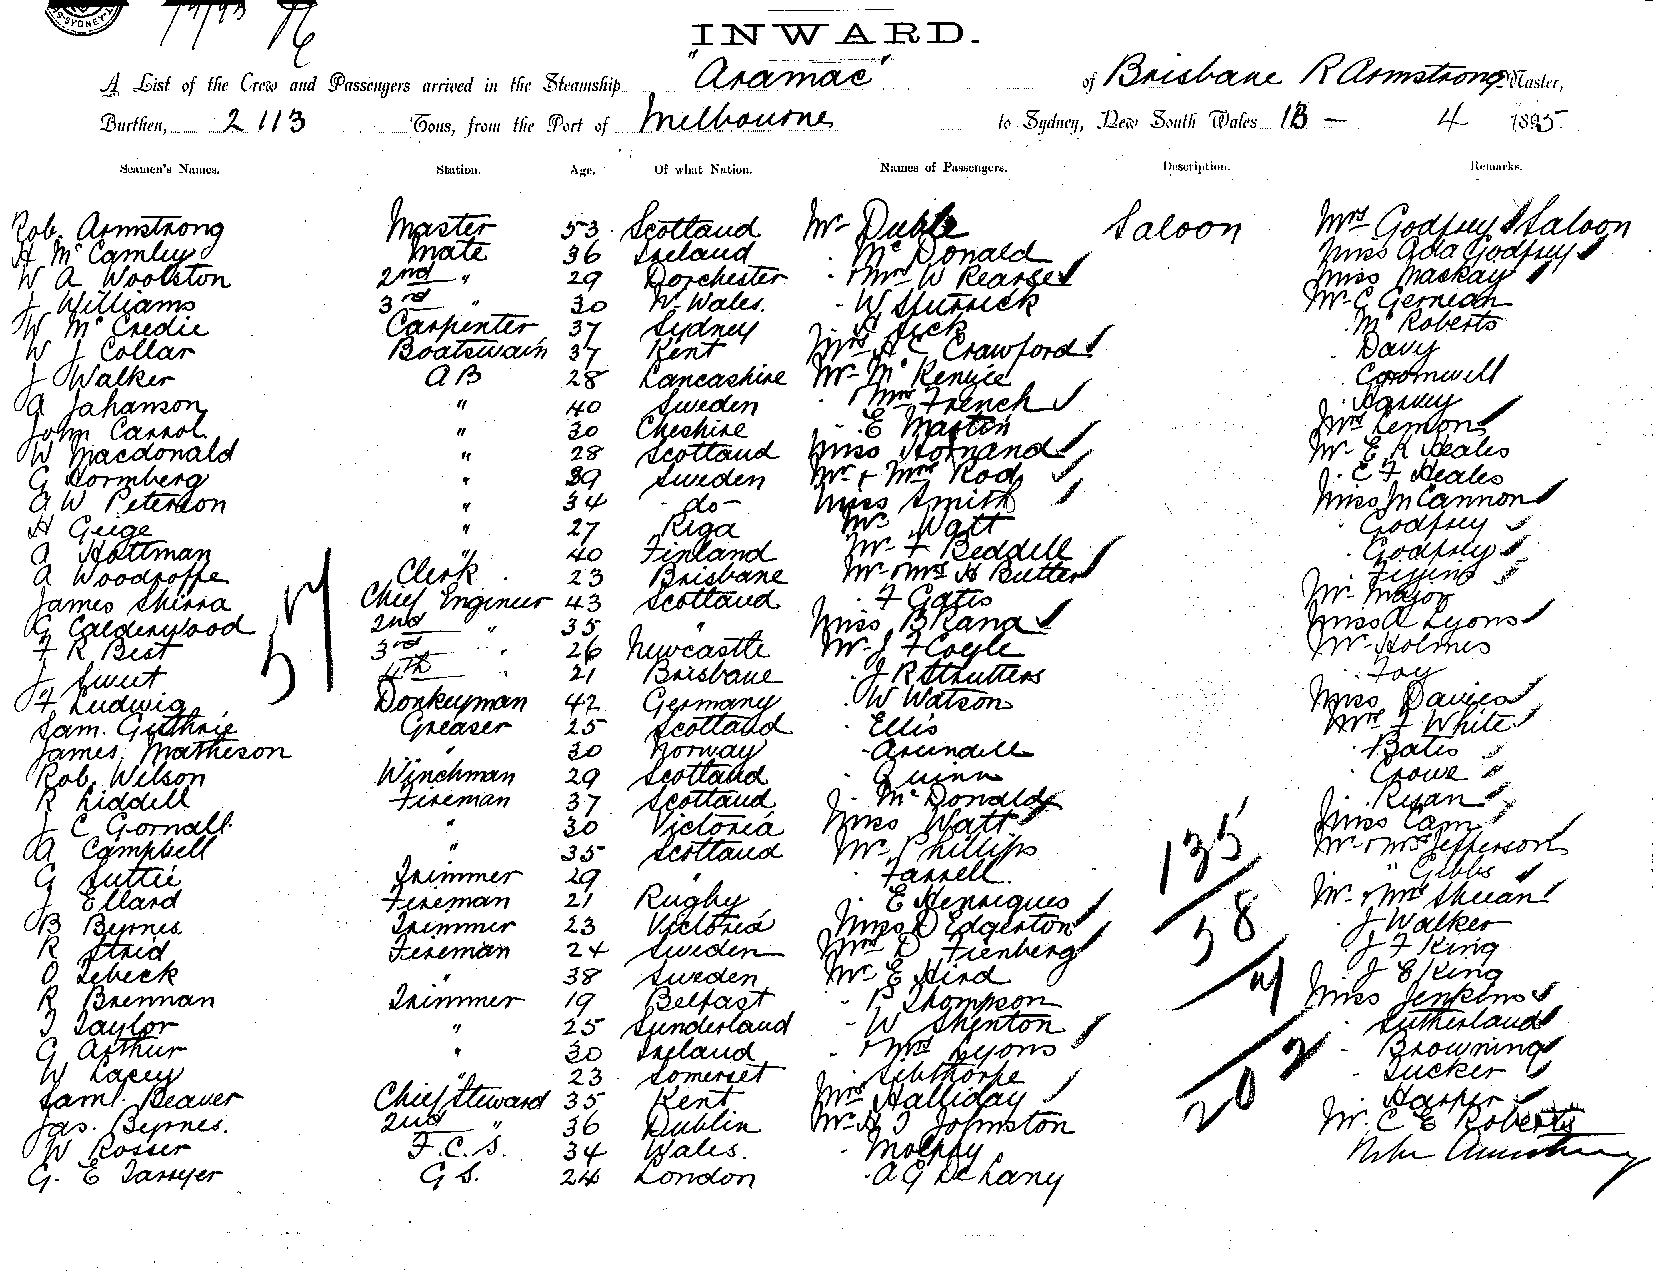 SYDNEY
INWARD.
A List of the Crew and Passengers arrived in the Steamship "Aramac" of Brisbane R Armstrong Master,
Burthen, 2113 Tons, from the Port of Melbourne to Sydney, New South Wales 18 – 4 1895
Seamen's Names. Station. Age. Of what Nation. Names of Passengers. Description. Remarks.
Rob. Armstrong Master 53 Scotland Mr Duble Saloon Mrs Godfrey Saloon
H McCamley Mate 36 Ireland McDonald Miss Ada Godfrey
W A Woolston 2nd " 29 Dorchester " Mrs W Pearse Miss Mackay
J Williams 3rd " 30 N. Wales. W Sturrick Mr C Gernean
W McCredie Carpenter 37 Sydney Sick McRoberts
W J Collar Boatswain 37 Kent Mrs A C Crawford Davy
J Walker AB 28 Lancashire Mr McKenzie Cromwell
A Johanson " 40 Sweden " Mrs French Harvey
John Carrol " 30 Cheshire E Martin Mrs Lemons
W Macdonald " 28 Scotland Miss Mr E R Heales
G Hormberg " 39 Sweden Mr & Mrs Rod E F Heales
A W Peterson " 34 - do - Miss Smith Miss McCannon
H Geige " 27 Riga Mr Watt Godfrey
A Hottman " 40 Finland Mr F Beddell Godfrey
A Woodroffe Clerk 23 Brisbane Mr & Mrs H Butter
James Shirra Chief Engineer 43 Scotland F Gates Mr Major
G Calderwood 2nd " 35 " Miss B Rana Miss A Lyons
F R Best 3rd " 26 Newcastle Mr J F Coyle Mr Holmes
J Sweet 4th " 21 Brisbane J R Strutters Foy
F Ludwig Donkeyman 42 Germany W Watson Miss Davies
Sam. Guthrie Greaser 25 Scotland Ellis Mrs F White
James Matheson " 30 Norway Arundell Bates
Rob. Wilson Winchman 29 Scotland Quinn Crowe
R Liddell Fireman 37 Scotland J. McDonald Ryan
J C Gornall " 30 Victoria Miss Watt Miss Cam
A Campbell " 35 Scotland Mr Phillips Mr & Mrs Jefferson
G Suttie Trimmer 29 " Farrell " Gibbs
J Ellard Fireman 21 Rugby E Henriques Mr & Mrs Skuan
B Byrnes Trimmer 23 Victoria Miss D Edgerton J Walker
R Strid Fireman 24 Sweden Mrs D Fienberg J F King
O Lebeck " 38 Sweden Mr E Hird J E King
R Brennan Trimmer 19 Belfast P Thompson Miss Jenkins
T Taylor " 25 Sunderland W Shenton Sutherland
G Arthur " 30 Ireland " Mrs Lyons Browning
W Lacey " 23 Somerset Sibthorpe Tucker
Saml. Beaver Chief Steward 35 Kent Mrs Halliday Harper
Jas. Byrnes. 2nd " 36 Dublin Mr H T Johnston Mr. C E Roberts
W Rosser F.C.S. 34 Wales. Molphy
G. E Tarryer G S. 24 London A G De Lany
57
135
58
20